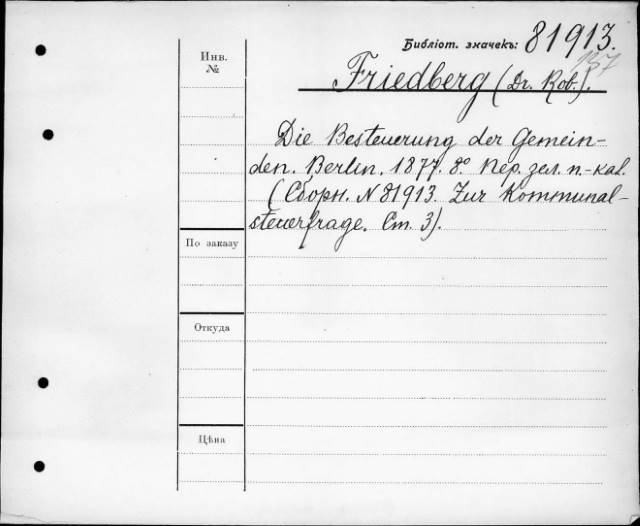 Библіот. значекъ: 81913.
137
Инв.
№
Friedberg (Dr. Rob.).
Die Besteuerung der Gemein-
den. Berlin. 1877. 8º Пер. зел. п.-кал.
(Сборн. N 81913. Zur Kommunal-
steuerfrage. Ст. 3).
По заказу
Откуда
Цѣна